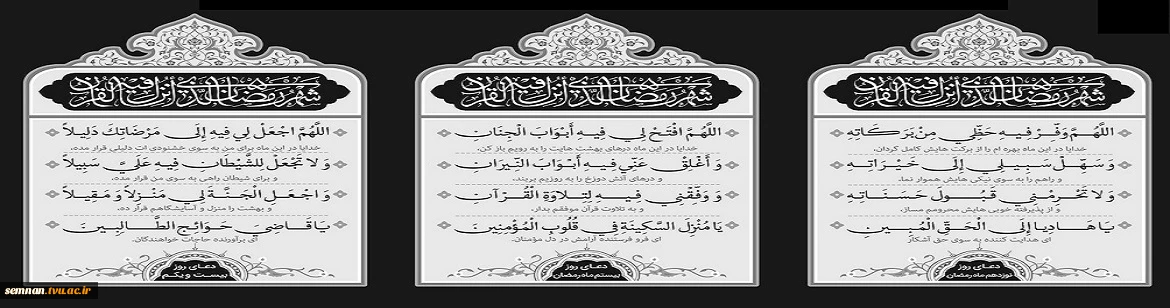 شهر رمضان الذی انزل فیه القرآن
اللهُمَّ وَفِّرْ فیهِ حَظّی مِنْ بَرَکاتِهِ
خدایا در این ماه بهره ام را از برکت هایش کامل گردان،
وَ سَهِّلْ سَبیلی إِلَی خَیْراتِهِ
و راهم را به سوی نیکی هایش هموار نما،
وَ لا تَحْرِمْنی قَبُولَ حَسَناتِهِ
و از پذیرفته خوبی هایش محرومم مساز،
یَا هَادِیا إِلَی الْحَقِّ الْمُبینِ
ای هدایت کننده به سوی حق آشکار
دعای روز
نوزدهم ماه رمضان
شهر رمضان الذی انزل فیه القرآن
اللهُمَّ افْتَحْ لی فیهِ أَبْوَابَ الْجِنَانِ
خدایا در این ماه درهای بهشت هایت را به رویم باز کن،
وَ أَغْلِقْ عَنّی فیهِ أَبْوَابَ النّیرَانِ
و درهای آتش دوزخ را به روزیم بربند،
وَ وَفِّقْنی فیهِ لِتِلاوَةِ الْقُرْآنِ
و به تلاوت قرآن موفقم بدار،
یَا مُنْزِلَ السَّکینَةِ فی قُلُوبِ الْمُؤْمِنینَ
ای فرو فرستنده آرامش در دل مؤمنان.
دعای روز
بیستم ماه رمضان
شهر رمضان الذی انزل فیه القرآن
اللهُمَّ اجْعَلْ لی فیهِ إِلَی مَرْضَاتِکَ دَلیلاً
خدایا در این ماه برای من به سوی خشنودی ات دلیلی قرار مده،
وَ لا تَجْعَلْ لِلشَّیْطَانِ فیهِ عَلَیَّ سَبیلاً
و برای شیطان راهی به سوی من قرار مده،
وَ اجْعَلِ الْجَنَّةَ لی مَنْزِلاً وَ مَقیلاً
و بهشت را منزل و آسایشگاهم قرار ده،
یَا قَاضِیَ حَوَائِجِ الطَّالِبینَ
ای برآورنده حاجات خواهندگان.
دعای روز
بیست و یکم
semnan.tvu.ac.ir